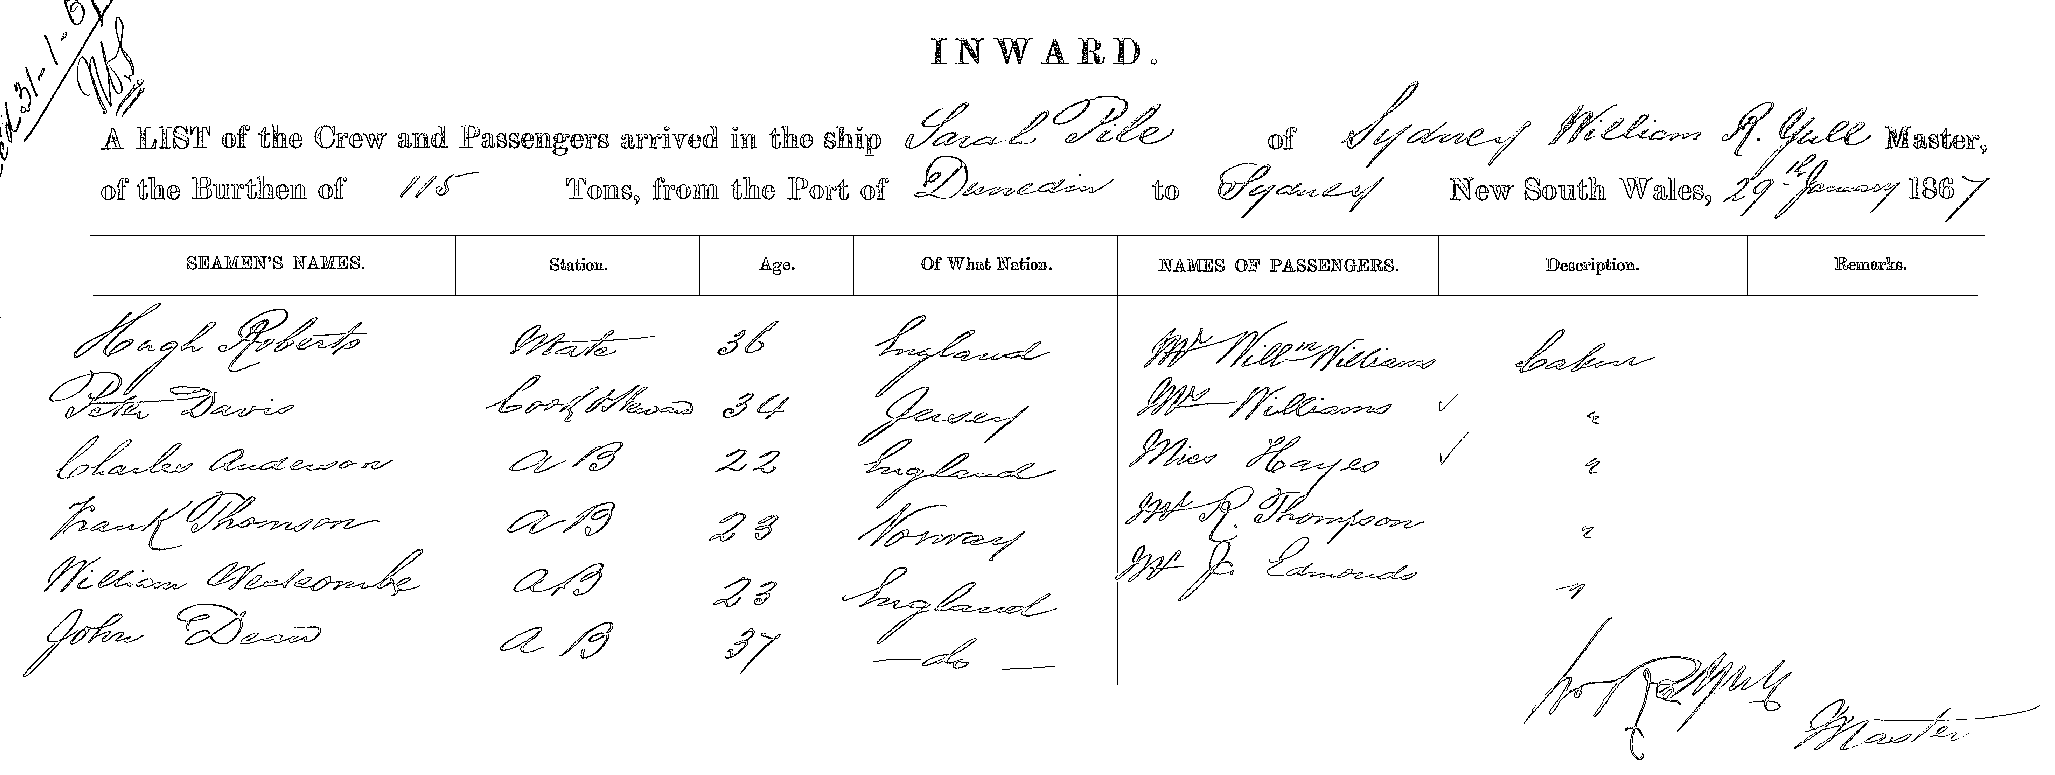 31-1-
INWARD.
A LIST of the Crew and Passengers arrived in the ship Sarah Pile of Sydney William R. Yull Master,
of the Burthen of 115 Tons, from the Port of Dunedin to Sydney New South Wales, 29th January 1867
SEAMEN'S NAMES. Station. Age. Of What Nation. NAMES OF PASSENGERS. Description. Remarks.
Hugh Roberts Mate 36 England Mr Willm Williams Cabin
Peter Davis Cook & Steward 34 Jersey Mrs Williams ✓ "
Charles Anderson A B 22 England Miss Hayes ✓ "
Frank Thomson A B 23 Norway Mr R. Thompson "
William A B 23 England Mr J. Edmonds "
John Dean A B 37 — do —
Master